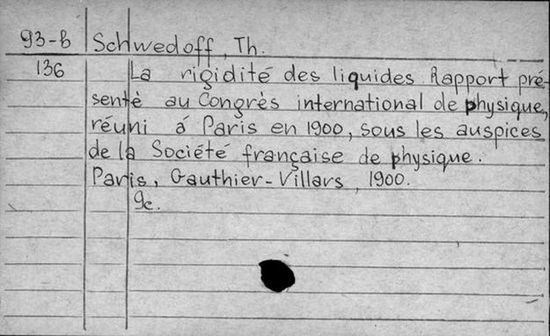 93-b Schwedoff, Th.
136 La rigidité des liquides Rapport pré-
senté au Congrès international de physique,
réuni á Paris en 1900, sous les auspices
de la Société française de physique.
Paris, Gauthier-Villars, 1900.
9c.